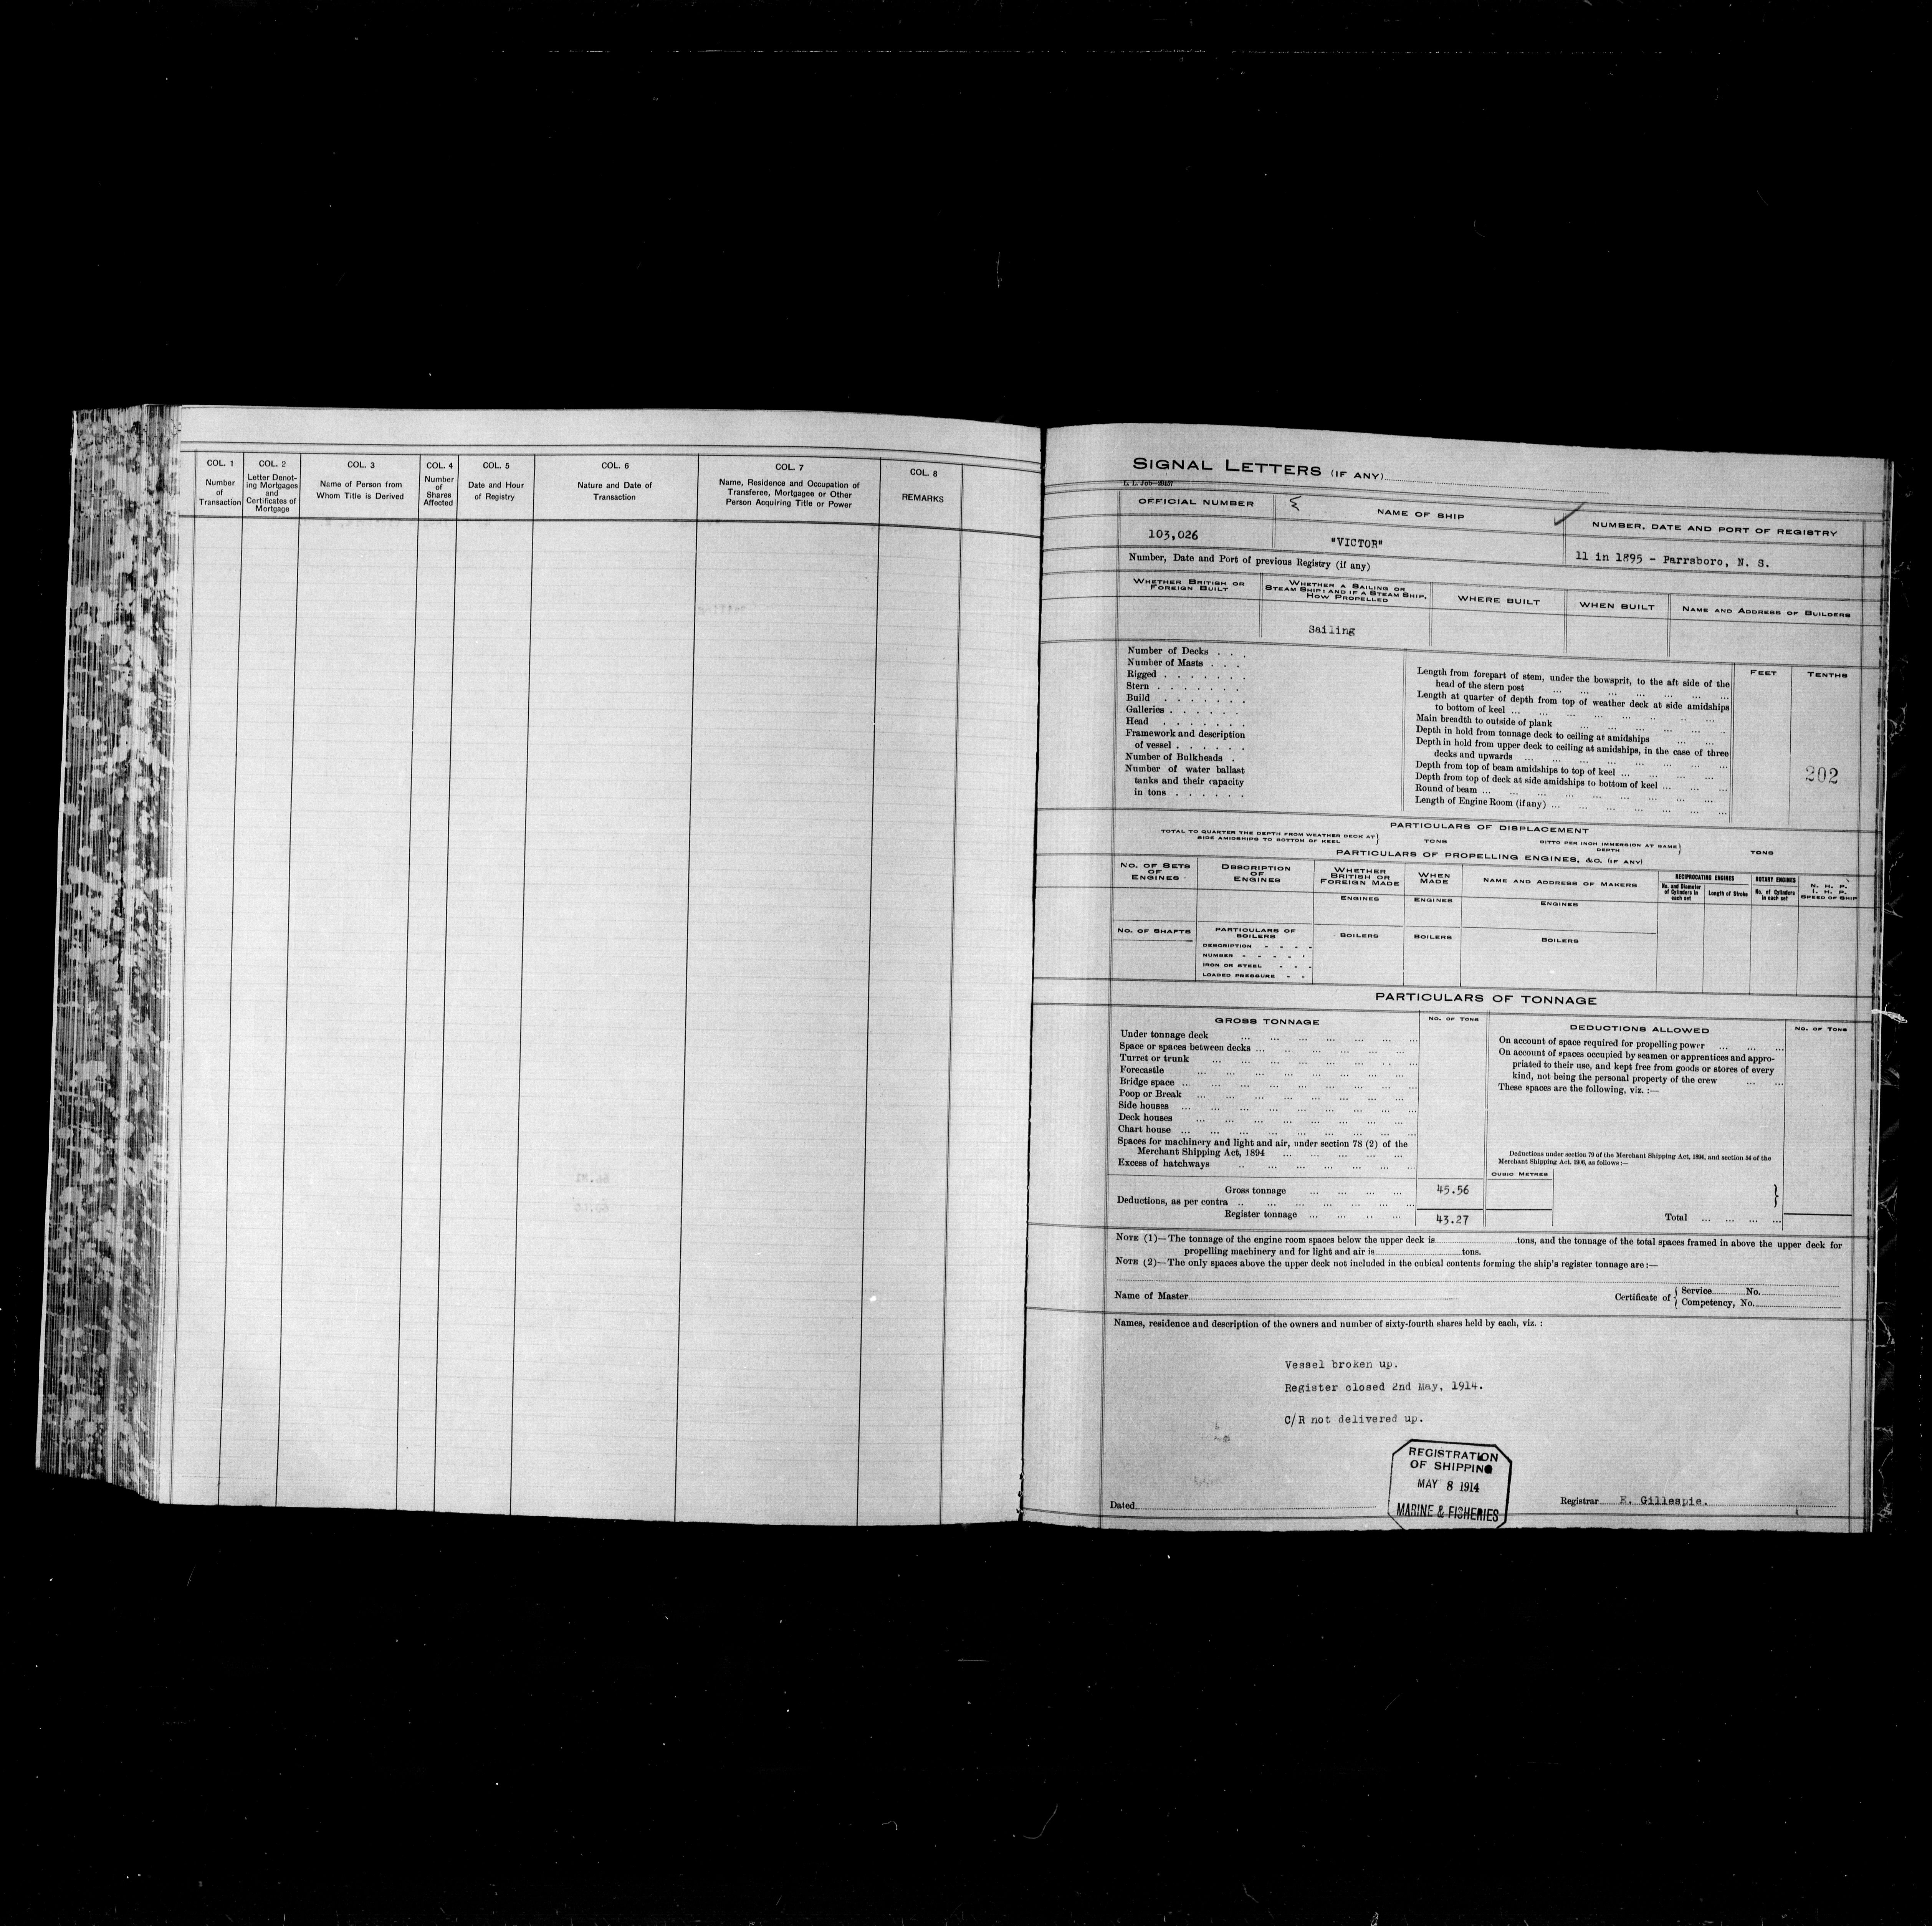 COL. 1
Number
of
Transaction
COL. 2
Letter Denot-
ing Mortgages
and
Certificates of
Mortgage
COL. 3
Name of Person from
Whom Title is Derived
COL. 4
Number
of
Shares
Affected
COL. 5
Date and Hour
of Registry
COL. 6
Nature and Date of
Transaction
COL. 7
Name, Residence and Occupation of
Transferee, Mortgagee or Other
Person Acquiring Title or Power
COL. 8
REMARKS
SIGNAL LETTERS (IF ANY)
OFFICIAL NUMBER
NAME OF SHIP
NUMBER, DATE AND PORT OF REGISTRY
103,026
"VICTOR"
11 in 1895 - Parrsboro, N. S.
Number, Date and Port of previous Registry (if any)
WHETHER BRITISH OR
FOREIGN BUILT
WHETHER A SAILING OR
STEAM SHIP: AND IF A STEAM SHIP,
HOW PROPELLED
WHERE BUILT
WHEN BUILT
NAME AND ADDRESS OF BUILDERS
Sailing
Number of Decks
Number of Masts
Rigged
Stern
Build
Galleries
Head
Framework and description
of vessel
Number of Bulkheads
Number of water ballast
tanks and their capacity
in tons
FEET
TENTHS
Length from forepart of stem, under the bowsprit, to the aft side of the
head of the stern post
Length at quarter of depth from top of weather deck at side amidships
to bottom of keel
Main breadth to outside of plank
Depth in hold from tonnage deck to ceiling at amidships
Depth in hold from upper deck to ceiling at amidships, in the case of three
decks and upwards
Depth from top of beam amidships to top of keel
Depth from top of deck at side amidships to bottom of keel
Round of beam
Length of Engine Room (if any)
202
PARTICULARS OF DISPLACEMENT
TOTAL TO QUARTER THE DEPTH FROM WEATHER DECK AT
SIDE AMIDSHIPS TO BOTTOM OF KEEL
TONS
DITTO PER INCH IMMERSION AT SAME
DEPTH
TONS
PARTICULARS OF PROPELLING ENGINES, &C. (IF ANY)
NO. OF SETS
OF
ENGINES
DESCRIPTION
OF
ENGINES
WHETHER
BRITISH OR
FOREIGN MADE
WHEN
MADE
NAME AND ADDRESS OF MAKERS
RECIPROCATING ENGINES
No. and Diameter
of Cylinders in
each set
Length of Stroke
ROTARY ENGINES
No. of Cylinders
in each set
N. H. P.
I. H. P.
SPEED OF SHIP
ENGINES
ENGINES
ENGINES
NO. OF SHAFTS
PARTICULARS OF
BOILERS
DESCRIPTION
NUMBER
IRON OR STEEL
LOADED PRESSURE
BOILERS
BOILERS
BOILERS
PARTICULARS OF TONNAGE
GROSS TONNAGE
NO. OF TONS
DEDUCTIONS ALLOWED
NO. OF TONS
Under tonnage deck
Space or spaces between decks
Turret or trunk
Forecastle
Bridge space
Poop or Break
Side houses
Deck houses
Chart house
Spaces for machinery and light and air, under section 78 (2) of the
Merchant Shipping Act, 1894
Excess of hatchways
Gross tonnage 45.56
Deductions, as per contra
Register tonnage 43.27
On account of space required for propelling power
On account of spaces occupied by seamen or apprentices and appro-
priated to their use, and kept free from goods or stores of every
kind, not being the personal property of the crew
These spaces are the following, viz. :—
Deductions under section 79 of the Merchant Shipping Act, 1894, and section 54 of the
Merchant Shipping Act, 1906, as follows:—
CUBIC METRES
Total
NOTE (1)—The tonnage of the engine room spaces below the upper deck is tons, and the tonnage of the total spaces framed in above the upper deck for
propelling machinery and for light and air is tons.
NOTE (2)—The only spaces above the upper deck not included in the cubical contents forming the ship's register tonnage are:—
Name of Master
Certificate of { Service No.
Competency, No.
Names, residence and description of the owners and number of sixty-fourth shares held by each, viz. :
Vessel broken up.
Register closed 2nd May, 1914.
C/R not delivered up.
REGISTRATION
OF SHIPPING
MAY 8 1914
MARINE & FISHERIES
Dated
Registrar E. Gillespie.